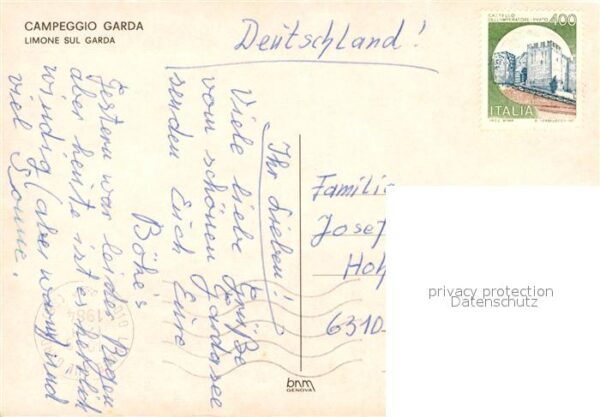 CAMPEGGIO GARDA
LIMONE SUL GARDA
Deutschland!
CASTELLO
DELL'IMPERATORE · PRATO
400
ITALIA
Ihr Lieben!
Viele liebe Grüße
vom schönen Gardasee
senden Euch Eure
Böhe's
Gestern war leider Regen
aber heute ist es herrlich
windig (aber warm) und
viel Sonne.
Familie
Josef
Hoh
6310
privacy protection
Datenschutz
1984
bnm
GENOVA